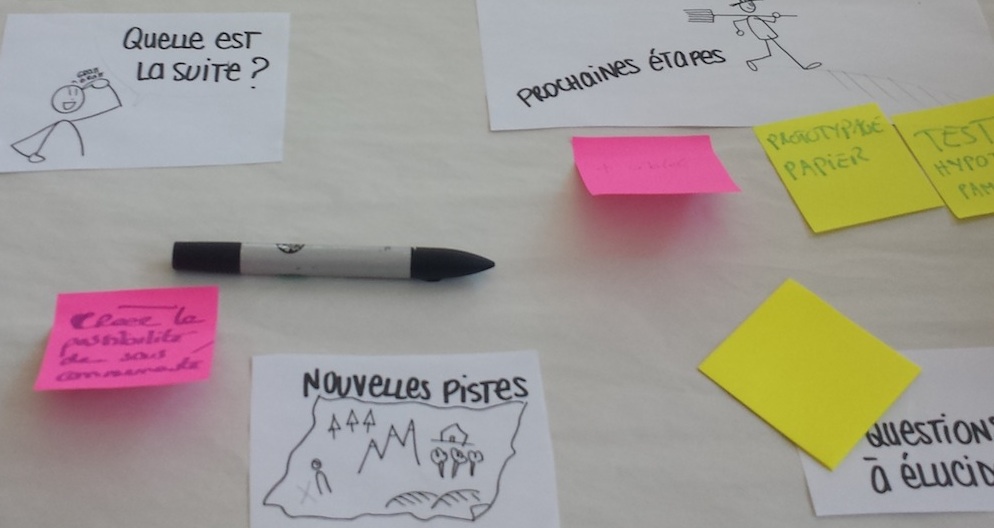 QUELLE EST
LA SUITE ?
PROCHAINES ÉTAPES
PROTOTYPAGE
PAPIER
TEST
HYPOT
PAM
Créer la
possibilité
de sous
communauté
NOUVELLES PISTES
QUESTIONS
à ÉLUCID